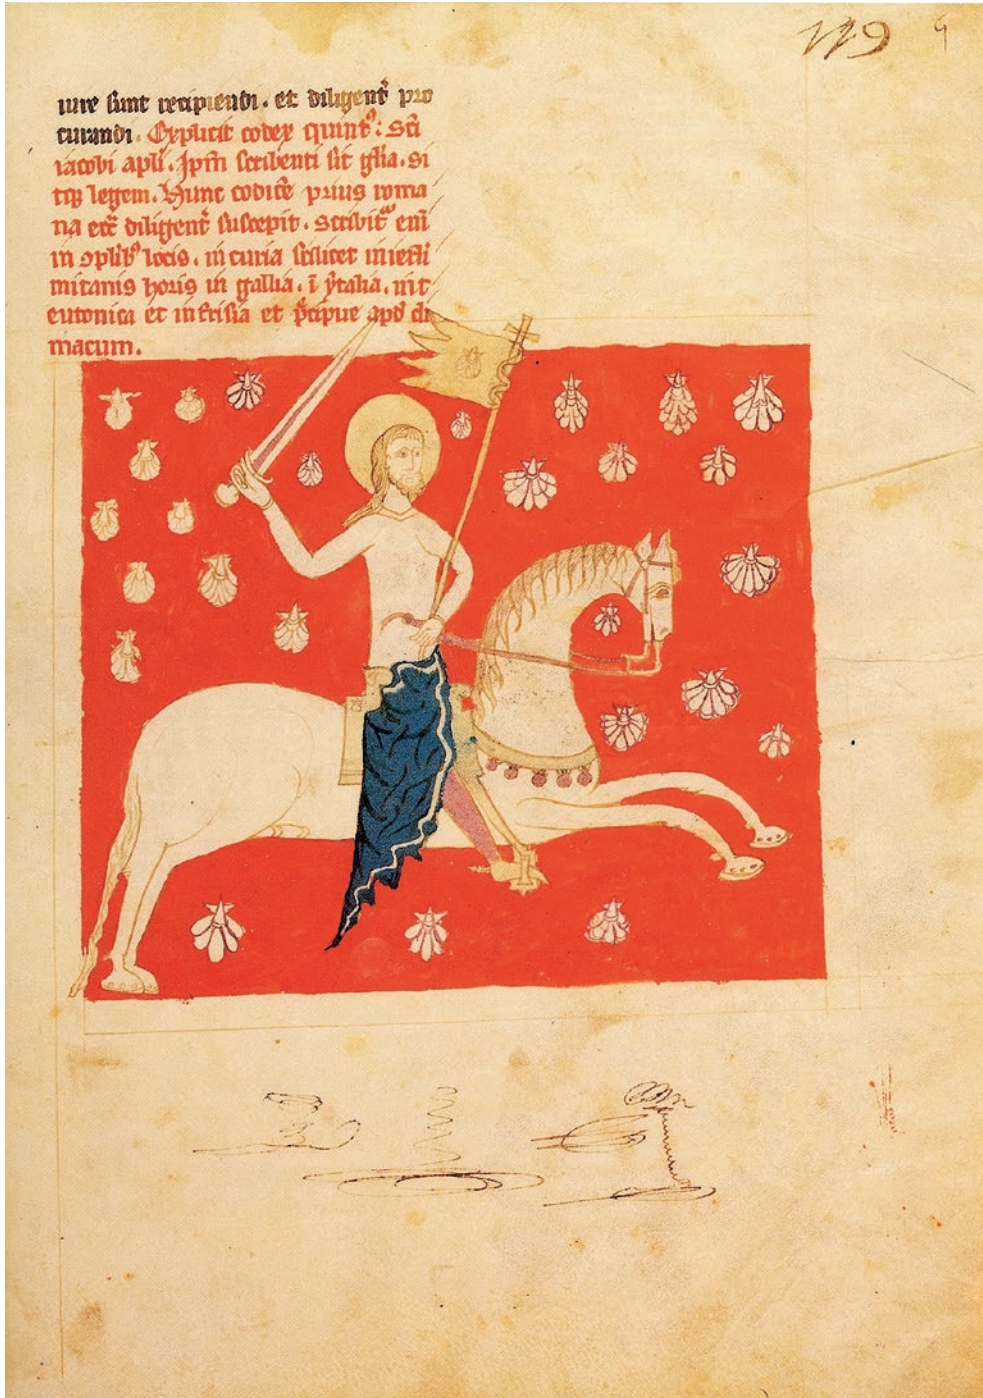 119
iure sunt recipiendi. et diligent̉ pro
curandi. Explicit codex quint⁹: sc̄i
iacobi apl̄i. Ip̄m scribenti sit gl̄ia. si
tq; legenti. Hunc codicē prius roma
na eccl̄ diligent̉ suscepit. Scribit᷑ eni
in ꝯplib⁹ locis. in curia scilicet in ierl̄i
mitanis horis in gallia. ī ẏtalia. in t
eutonica et in frisia et p̄cipue apd̄ clu
niacum.